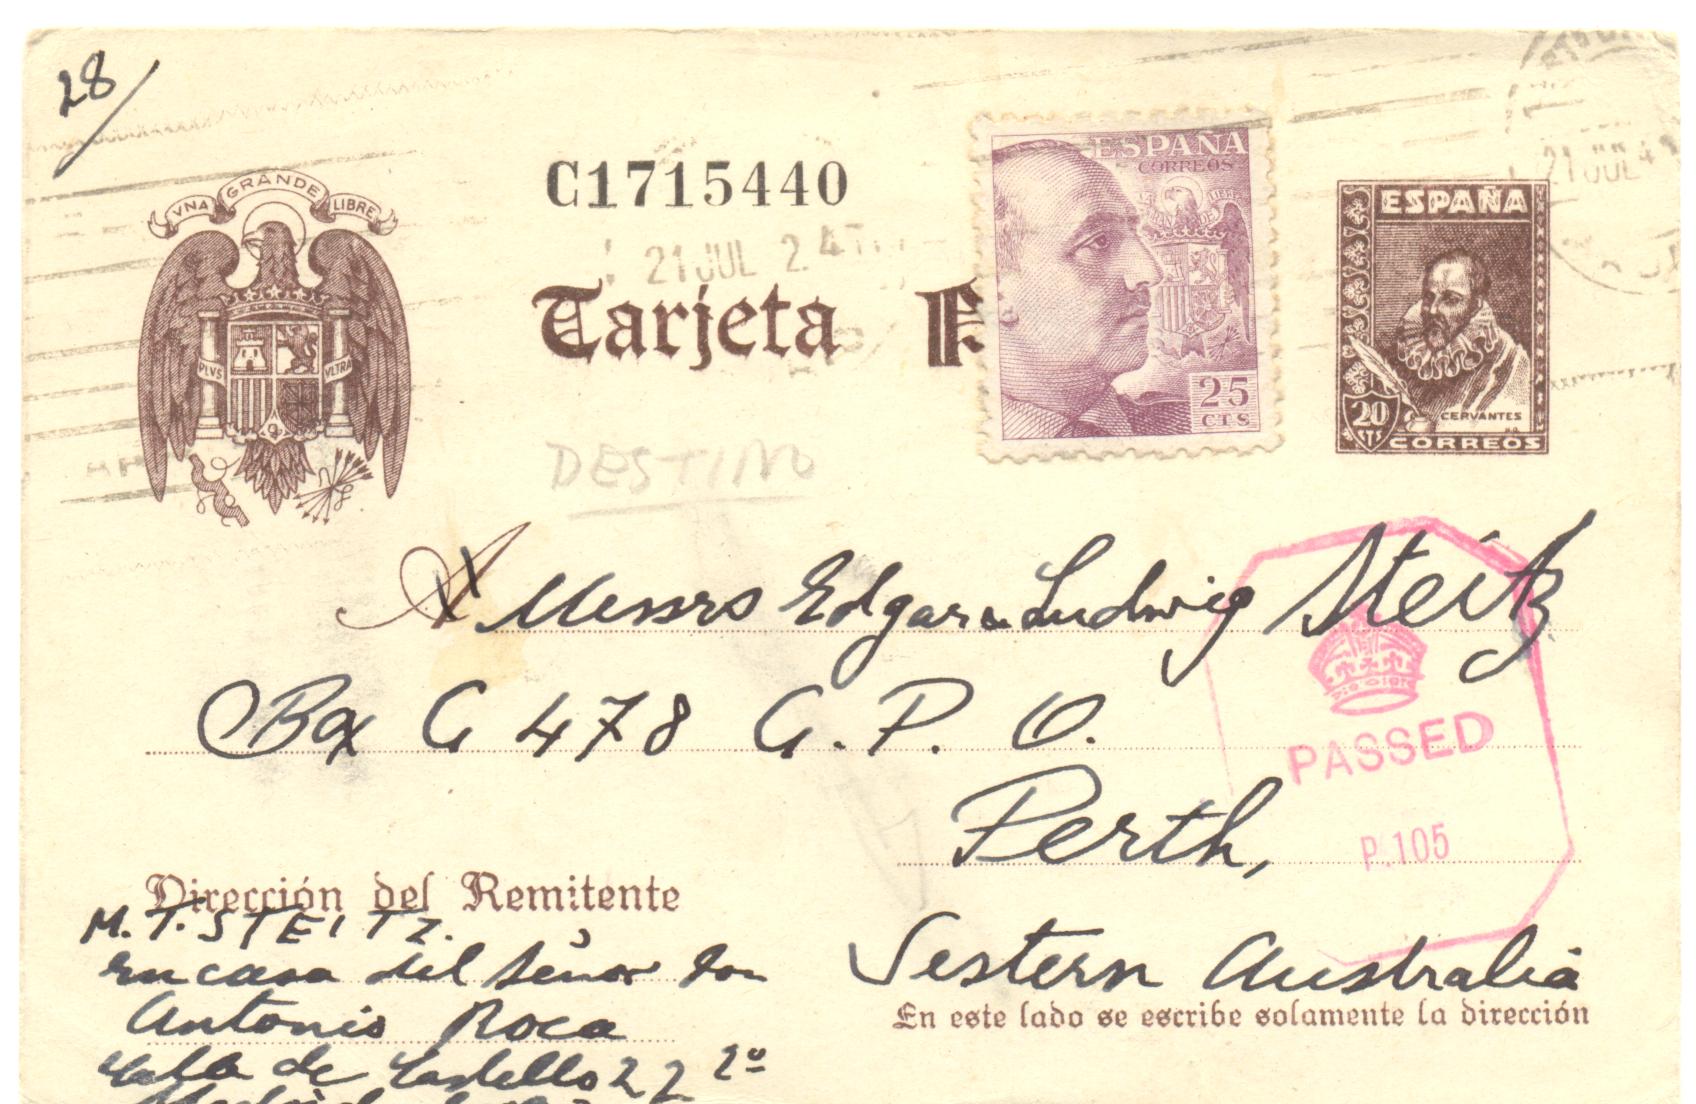 28/
UNA GRANDE LIBRE
PLVS VLTRA
C1715440
21 JUL
Tarjeta P
ESPAÑA
CORREOS
25
CTS
21 JUL
ESPAÑA
CERVANTES
20
CTS
CORREOS
DESTINO
A Messrs Edgar & Ludwig Steitz
Box G 478 G.P.O.
Perth,
Western Australia
PASSED
P.105
Dirección del Remitente
M. T. STEITZ.
en casa del Señor Don
Antonio Roca
Calle de Castello 22 2º
Madrid
En este lado se escribe solamente la dirección